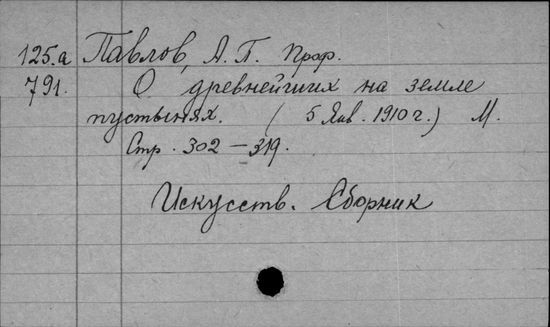 125.а Павлов, А. П. Проф.
791. О древнейших на земле
пустынях. ( 5 Янв. 1910 г.) М.
Стр. 302 – 319.
Искусств. Сборник